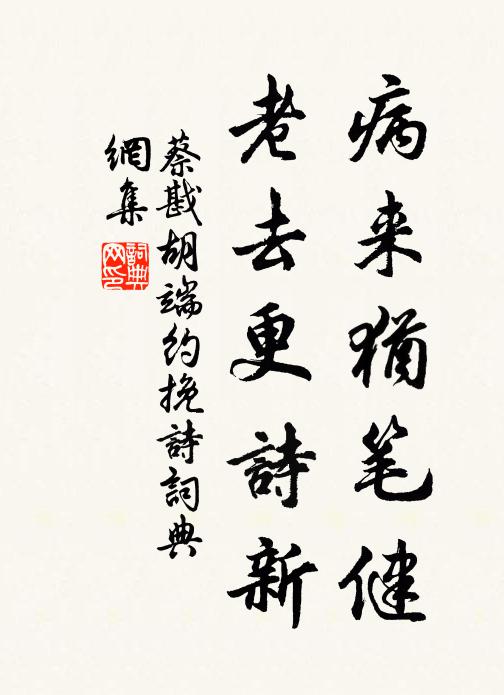 病来猶笔健
老去更詩新
蔡戡胡端约挽詩詞典
網集
詞典网印